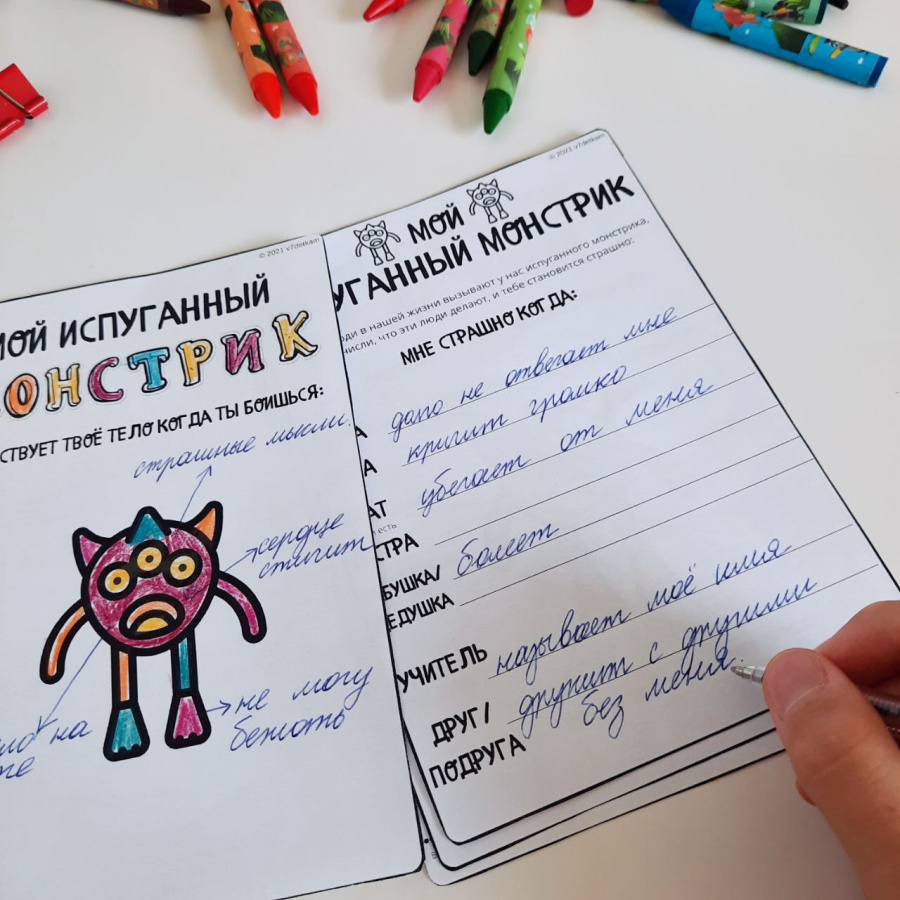 © 2021 v7detkam
МОЙ ИСПУГАННЫЙ
МОНСТРИК
СТВУЕТ ТВОЁ ТЕЛО КОГДА ТЫ БОИШЬСЯ:
страшные мысли
сердце
стигит
не могу
бежать
на
© 2021 v7detkam
МОЙ
УГАННЫЙ МОНСТРИК
юди в нашей жизни вызывают у нас испуганного монстрика,
числи, что эти люди делают, и тебе становится страшно:
МНЕ СТРАШНО КОГДА:
А дало не отвегает мне
А кригит громко
АТ убегает от меня
есть
СТРА
БУШКА/ болеет
ЕДУШКА
УЧИТЕЛЬ называет моё имя
ДРУГ/ дружит с другими
ПОДРУГА без меня